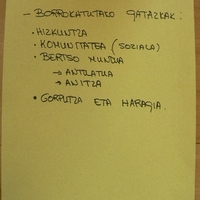 - BORROKATUTAKO GATAZKAK:
• HIZKUNTZA
• KOMUNITATEA (SOZIALA)
• BERTSO MUNDUA
→ ANTZATUA
→ ANITZA
• GORPUTZA ETA HARAGIA.